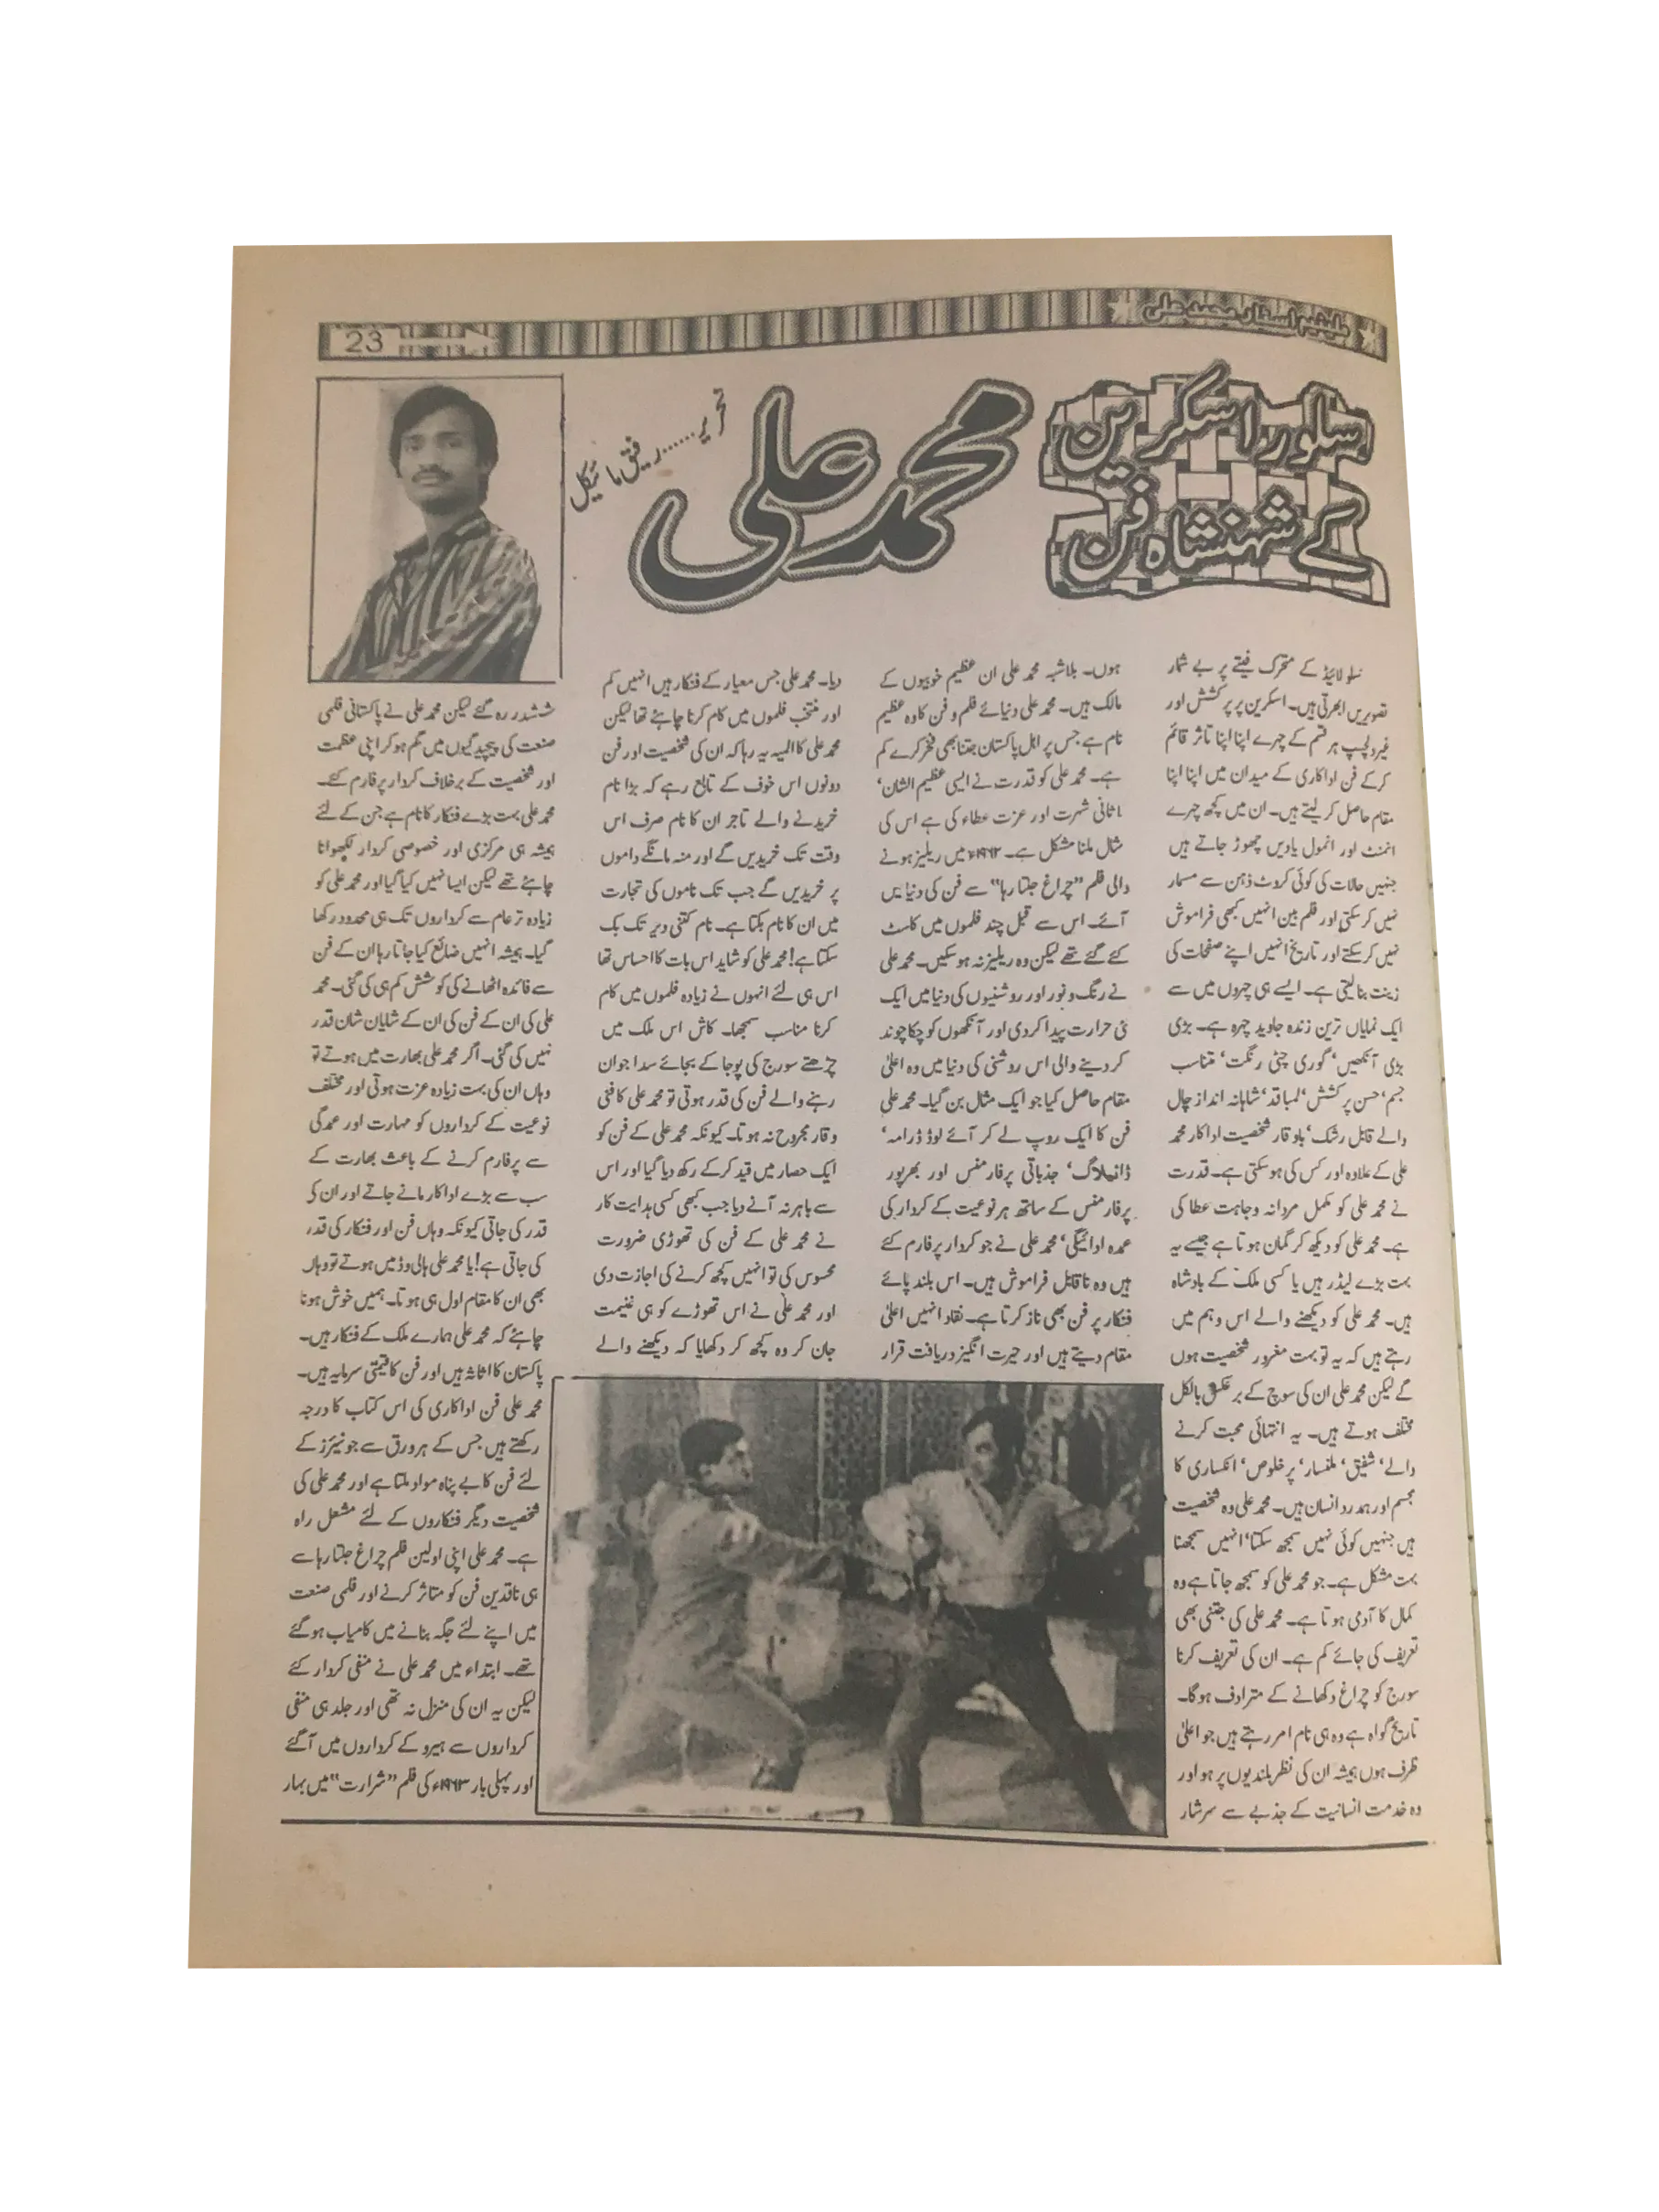 ملینیم اسٹار محمد علی
23
سلور اسکرین
کے شہنشاہ فن
محمد علی
تحریر......رفیق مائیکل
سلولائیڈ کے متحرک فیتے پر بے شمار
تصویریں ابھرتی ہیں۔ اسکرین پر پرکشش اور
غیردلچسپ ہر قسم کے چہرے اپنا اپنا تاثر قائم
کرکے فن اداکاری کے میدان میں اپنا اپنا
مقام حاصل کرلیتے ہیں۔ ان میں کچھ چہرے
انمٹ اور انمول یادیں چھوڑ جاتے ہیں
جنہیں حالات کی کوئی کروٹ ذہن سے مسمار
نہیں کرسکتی اور فلم بین انہیں کبھی فراموش
نہیں کرسکتے اور تاریخ انہیں اپنے صفحات کی
زینت بنالیتی ہے۔ ایسے ہی چہروں میں سے
ایک نمایاں ترین زندہ جاوید چہرہ ہے۔ بڑی
بڑی آنکھیں‘ گوری چٹی رنگت‘ متناسب
جسم‘ حسن پرکشش‘ لمباقد‘ شاہانہ انداز چال
والے قابل رشک‘ باوقار شخصیت اداکار محمد
علی کے علاوہ اور کس کی ہوسکتی ہے۔ قدرت
نے محمد علی کو مکمل مردانہ وجاہت عطا کی
ہے۔ محمد علی کو دیکھ کر گمان ہوتا ہے جیسے یہ
بہت بڑے لیڈر ہیں یا کسی ملک کے بادشاہ
ہیں۔ محمد علی کو دیکھنے والے اس وہم میں
رہتے ہیں کہ یہ تو بہت مغرور شخصیت ہوں
گے لیکن محمد علی ان کی سوچ کے برعکس بالکل
مختلف ہوتے ہیں۔ یہ انتہائی محبت کرنے
والے‘ شفیق‘ ملنسار‘ پرخلوص‘ انکساری کا
مجسم اور ہمدرد انسان ہیں۔ محمد علی وہ شخصیت
ہیں جنہیں کوئی نہیں سمجھ سکتا‘ انہیں سمجھنا
بہت مشکل ہے۔ جو محمد علی کو سمجھ جاتا ہے وہ
کمال کا آدمی ہوتا ہے۔ محمد علی کی جتنی بھی
تعریف کی جائے کم ہے۔ ان کی تعریف کرنا
سورج کو چراغ دکھانے کے مترادف ہوگا۔
تاریخ گواہ ہے وہ ہی نام امر رہتے ہیں جو اعلیٰ
ظرف ہوں ہمیشہ ان کی نظر بلندیوں پر ہو اور
وہ خدمت انسانیت کے جذبے سے سرشار
ہوں۔ بلاشبہ محمد علی ان عظیم خوبیوں کے
مالک ہیں۔ محمد علی دنیائے فلم و فن کا وہ عظیم
نام ہے جس پر اہل پاکستان جتنا بھی فخر کرے کم
ہے۔ محمد علی کو قدرت نے ایسی عظیم الشان‘
لاثانی شہرت اور عزت عطاء کی ہے اس کی
مثال ملنا مشکل ہے۔ ۱۹۶۲ء میں ریلیز ہونے
والی فلم ”چراغ جلتا رہا“ سے فن کی دنیا میں
آئے۔ اس سے قبل چند فلموں میں کاسٹ
کئے گئے تھے لیکن وہ ریلیز نہ ہوسکیں۔ محمد علی
نے رنگ و نور اور روشنیوں کی دنیا میں ایک
نئی حرارت پیدا کردی اور آنکھوں کو چکاچوند
کردینے والی اس روشنی کی دنیا میں وہ اعلیٰ
مقام حاصل کیا جو ایک مثال بن گیا۔ محمد علی
فن کا ایک روپ لے کر آئے لوڈ ڈرامہ‘
ڈائیلاگ‘ جذباتی پرفارمنس اور بھرپور
پرفارمنس کے ساتھ ہر نوعیت کے کردار کی
عمدہ ادائیگی‘ محمد علی نے جو کردار پرفارم کئے
ہیں وہ ناقابل فراموش ہیں۔ اس بلند پائے
فنکار پر فن بھی ناز کرتا ہے۔ نقاد انہیں اعلیٰ
مقام دیتے ہیں اور حیرت انگیز دریافت قرار
دیا۔ محمد علی جس معیار کے فنکار ہیں انہیں کم
اور منتخب فلموں میں کام کرنا چاہئے تھا لیکن
محمد علی کا المیہ یہ رہا کہ ان کی شخصیت اور فن
دونوں اس خوف کے تابع رہے کہ بڑا نام
خریدنے والے تاجر ان کا نام صرف اس
وقت تک خریدیں گے اور منہ مانگے داموں
پر خریدیں گے جب تک ناموں کی تجارت
میں ان کا نام بکتا ہے۔ نام کتنی دیر تک بک
سکتا ہے! محمد علی کو شاید اس بات کا احساس تھا
اس ہی لئے انہوں نے زیادہ فلموں میں کام
کرنا مناسب سمجھا۔ کاش اس ملک میں
چڑھتے سورج کی پوجا کے بجائے سدا جوان
رہنے والے فن کی قدر ہوتی تو محمد علی کا فنی
وقار مجروح نہ ہوتا۔ کیونکہ محمد علی کے فن کو
ایک حصار میں قید کرکے رکھ دیا گیا اور اس
سے باہر نہ آنے دیا جب کبھی کسی ہدایت کار
نے محمد علی کے فن کی تھوڑی ضرورت
محسوس کی تو انہیں کچھ کرنے کی اجازت دی
اور محمد علی نے اس تھوڑے کو ہی غنیمت
جان کر وہ کچھ کر دکھایا کہ دیکھنے والے
ششدر رہ گئے لیکن محمد علی نے پاکستانی فلمی
صنعت کی پیچیدگیوں میں گم ہوکر اپنی عظمت
اور شخصیت کے برخلاف کردار پرفارم کئے۔
محمد علی بہت بڑے فنکار کا نام ہے جن کے لئے
ہمیشہ ہی مرکزی اور خصوصی کردار لکھوانا
چاہئے تھے لیکن ایسا نہیں کیا گیا اور محمد علی کو
زیادہ تر عام سے کرداروں تک ہی محدود رکھا
گیا۔ ہمیشہ انہیں ضائع کیا جاتا رہا ان کے فن
سے فائدہ اٹھانے کی کوشش کم ہی کی گئی۔ محمد
علی کی ان کے فن کی ان کے شایان شان قدر
نہیں کی گئی۔ اگر محمد علی بھارت میں ہوتے تو
وہاں ان کی بہت زیادہ عزت ہوتی اور مختلف
نوعیت کے کرداروں کو مہارت اور عمدگی
سے پرفارم کرنے کے باعث بھارت کے
سب سے بڑے اداکار مانے جاتے اور ان کی
قدر کی جاتی کیونکہ وہاں فن اور فنکار کی قدر
کی جاتی ہے! یا محمد علی ہالی وڈ میں ہوتے تو وہاں
بھی ان کا مقام اول ہی ہوتا۔ ہمیں خوش ہونا
چاہئے کہ محمد علی ہمارے ملک کے فنکار ہیں۔
پاکستان کا اثاثہ ہیں اور فن کا قیمتی سرمایہ ہیں۔
محمد علی فن اداکاری کی اس کتاب کا درجہ
رکھتے ہیں جس کے ہر ورق سے جونیئرز کے
لئے فن کا بے پناہ مواد ملتا ہے اور محمد علی کی
شخصیت دیگر فنکاروں کے لئے مشعل راہ
ہے۔ محمد علی اپنی اولین فلم چراغ جلتا رہا سے
ہی ناقدین فن کو متاثر کرنے اور فلمی صنعت
میں اپنے لئے جگہ بنانے میں کامیاب ہوگئے
تھے۔ ابتداء میں محمد علی نے منفی کردار کئے
لیکن یہ ان کی منزل نہ تھی اور جلد ہی منفی
کرداروں سے ہیرو کے کرداروں میں آگئے
اور پہلی بار ۱۹۶۳ء کی فلم ”شرارت“ میں بہار